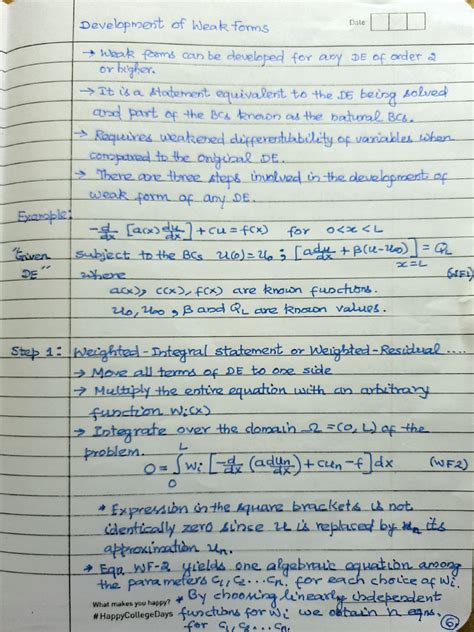 Development of Weak Forms
Date
→ Weak forms can be developed for any DE of order 2
or higher.
→ It is a statement equivalent to the DE being solved
and part of the BCs known as the natural BCs.
→ Requires weakened differentiability of variables when
compared to the original DE.
→ There are three steps involved in the development of
weak form of any DE.
Example:
-d/dx [a(x) du/dx] + cu = f(x) for 0<x<L
"Given DE" subject to the BCs u(0)=u₀ ; [a du/dx + β(u-u∞)] x=L = Q_L
where (WF1)
a(x), c(x), f(x) are known functions.
u₀, u∞, β and Q_L are known values.
Step 1: Weighted-Integral statement or Weighted-Residual .....
→ Move all terms of DE to one side
→ Multiply the entire equation with an arbitrary
function wᵢ(x)
→ Integrate over the domain Ω=(0, L) of the
problem.
0 = ∫₀ᴸ wᵢ [-d/dx (a duₙ/dx) + cuₙ - f] dx (WF2)
* Expression in the square brackets is not
identically zero since u is replaced by its
approximation uₙ.
* Eqn. WF-2 yields one algebraic equation among
the parameters c₁, c₂ ... cₙ. for each choice of wᵢ.
* By choosing linearly independent
What makes you happy?
#HappyCollegeDays
functions for wᵢ we obtain n eqns.
for c₁, c₂ ... cₙ.
6